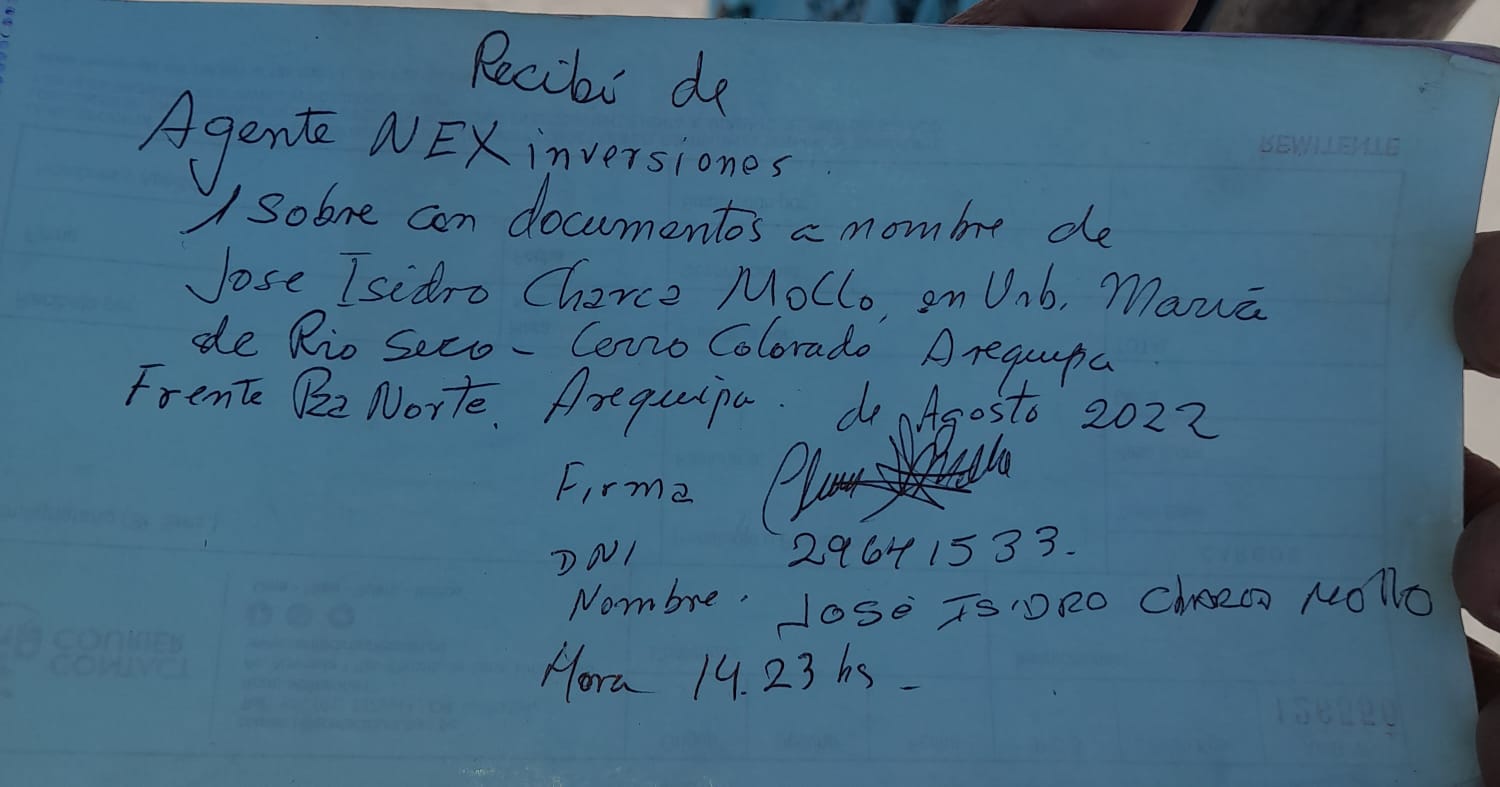 Recibí de
Agente NEX inversiones.
1 Sobre con documentos a nombre de
Jose Isidro Charca Mollo, en Urb. María
de Rio Seco - Cerro Colorado Arequipa
Frente Pza Norte. Arequipa. de Agosto 2022
Firma
DNI 29641533.
Nombre. JOSÉ ISIDRO CHARCA MOLLO
Hora 14.23 hs -
REMITENTE
COURIER
CONTACT